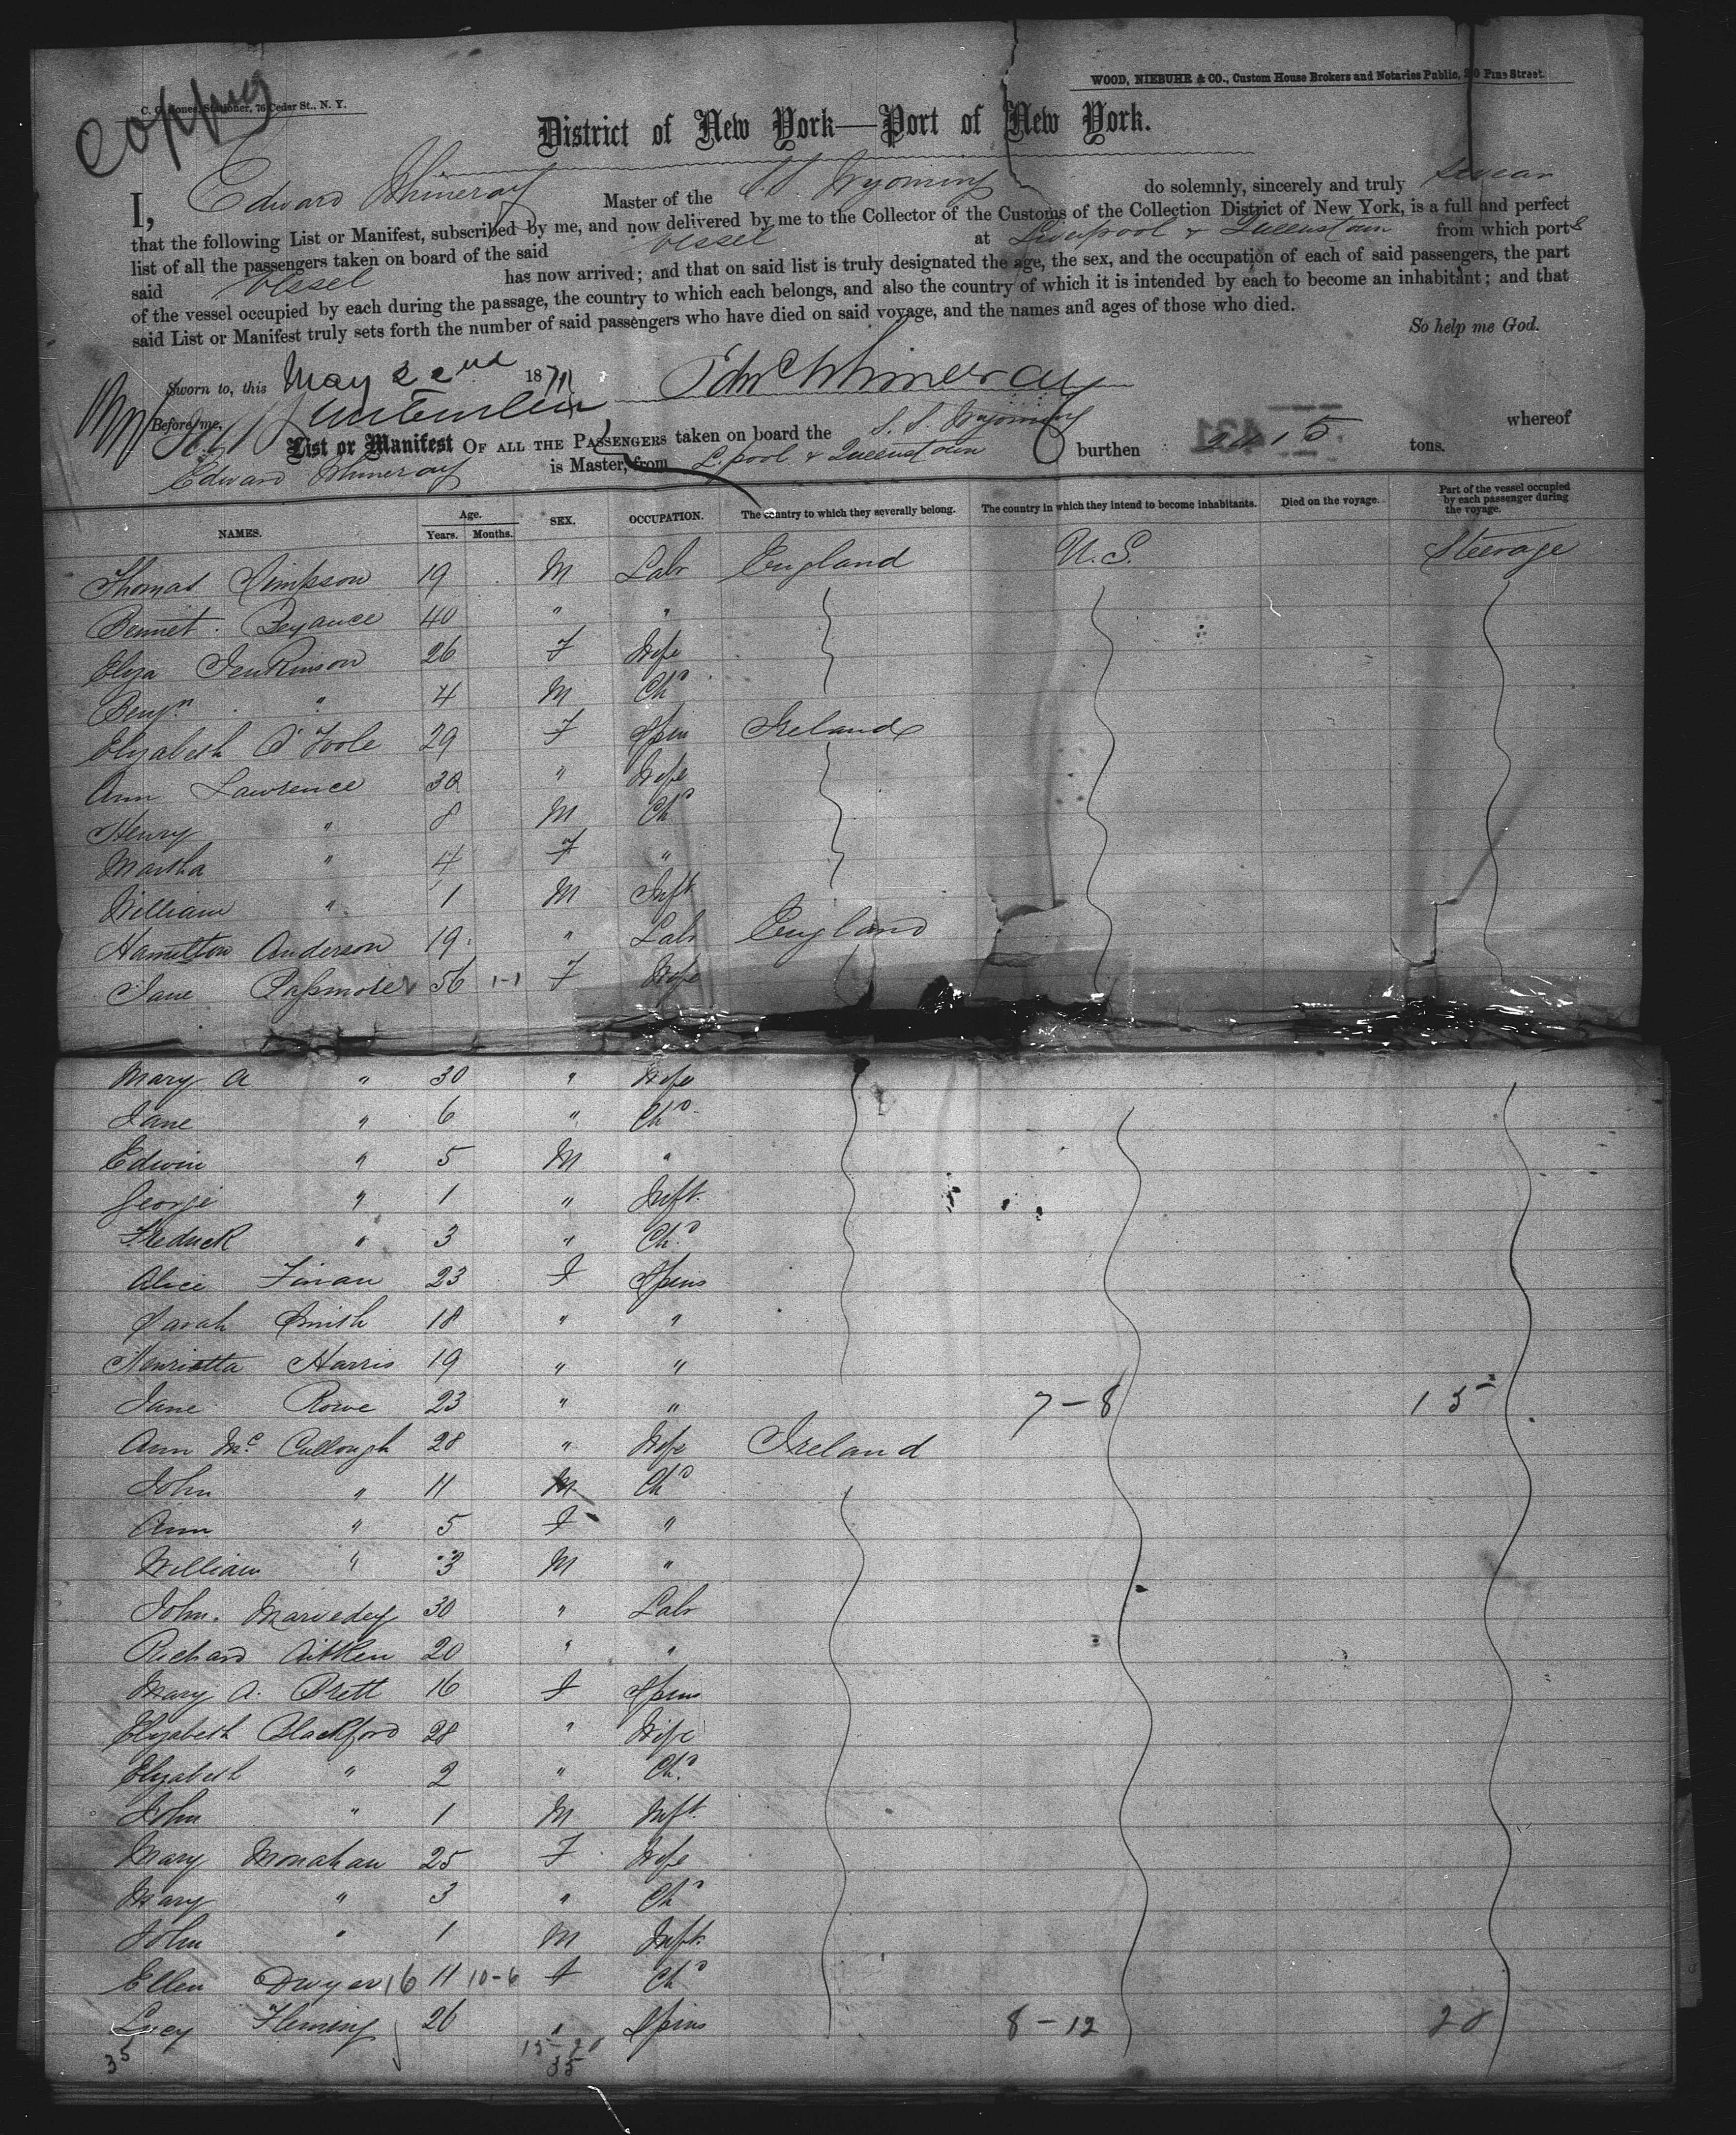 Copying
C. G. Jones, Stationer, 76 Cedar St., N. Y.
WOOD, NIEBUHR & CO., Custom House Brokers and Notaries Public, Pine Street.
District of New York—Port of New York.
I, Edward Whineray Master of the S.S. Wyoming do solemnly, sincerely and truly swear
that the following List or Manifest, subscribed by me, and now delivered by me to the Collector of the Customs of the Collection District of New York, is a full and perfect
list of all the passengers taken on board of the said Vessel at Liverpool & Queenstown from which ports
said Vessel has now arrived; and that on said list is truly designated the age, the sex, and the occupation of each of said passengers, the part
of the vessel occupied by each during the passage, the country to which each belongs, and also the country of which it is intended by each to become an inhabitant; and that
said List or Manifest truly sets forth the number of said passengers who have died on said voyage, and the names and ages of those who died.
So help me God.
Sworn to, this May 22nd 187 Edw Whineray
Before me,
List or Manifest OF ALL THE PASSENGERS taken on board the S. S. Wyoming burthen 2415 tons. whereof
Edward Whineray is Master, from L.pool & Queenstown
NAMES. Age. Years. Months. SEX. OCCUPATION. The country to which they severally belong. The country in which they intend to become inhabitants. Died on the voyage. Part of the vessel occupied by each passenger during the voyage.
Thomas Simpson 19 M Labr England U.S. Steerage
Bennet Beyance 40 " "
Eliza Jenkinson 26 F Wife
Benjn " 4 M Chd
Elizabeth O'Toole 29 F Spin Ireland
Ann Lawrence 32 " Wife
Henry " 8 M Chd
Martha " 4 F "
William " 1 M Inft
Hamilton Anderson 19 " Labr England
Jane Passmore 56 1-1 F Wife
Mary A " 30 " Wife
Jane " 6 " Chd
Edwin " 5 M "
George " 1 " Inft.
Fredrick " 3 " Chd
Alice Finan 23 F Spins
Sarah Smith 18 " "
Henrietta Harris 19 " "
Jane Rowe 23 " " 7-8 15
Ann McCullough 28 " Wife Ireland
John " 11 M Chd
Ann " 5 F "
William " 3 M "
John Marvedey 30 " Labr
Richard Aitken 20 " "
Mary A. Brett 16 F Spins
Elizabeth Blackford 28 " Wife
Elizabeth " 2 " Chd
John " 1 M Inft.
Mary Monahan 25 F Wife
Mary " 3 " Chd
John " 1 M Inft.
Ellen Dwyer 16 11 10-6 F Chd
Lucy Fleming 26 " Spins 8-12 20
35 15-20
35